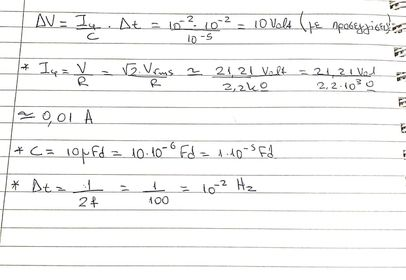 ΔV = I₄/C · Δt = 10⁻² · 10⁻²/10⁻⁵ = 10 Volt (με προσεγγίσεις)
* I₄ = V/R = √2 · Vrms/R ≃ 21,21 Volt/2,2kΩ = 21,21 Vol/2,2·10³Ω
≃ 0,01 A
* C = 10μFd = 10·10⁻⁶ Fd = 1·10⁻⁵ Fd
* Δt = 1/2f = 1/100 = 10⁻² Hz